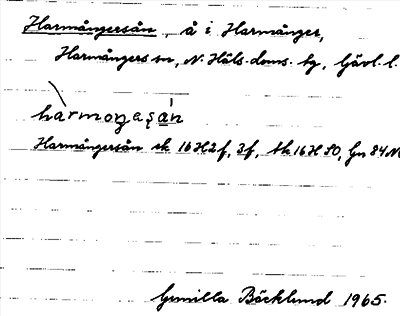 Harmångersån, å i Harmånger,
Harmångers sn, N. Häls. doms. bg, Gävl. l.
hàrmoŋaʂán
Harmångersån ek 16H2f, 3f, tk 16H SO, Gn 84 N
Gunilla Bäcklund 1965.